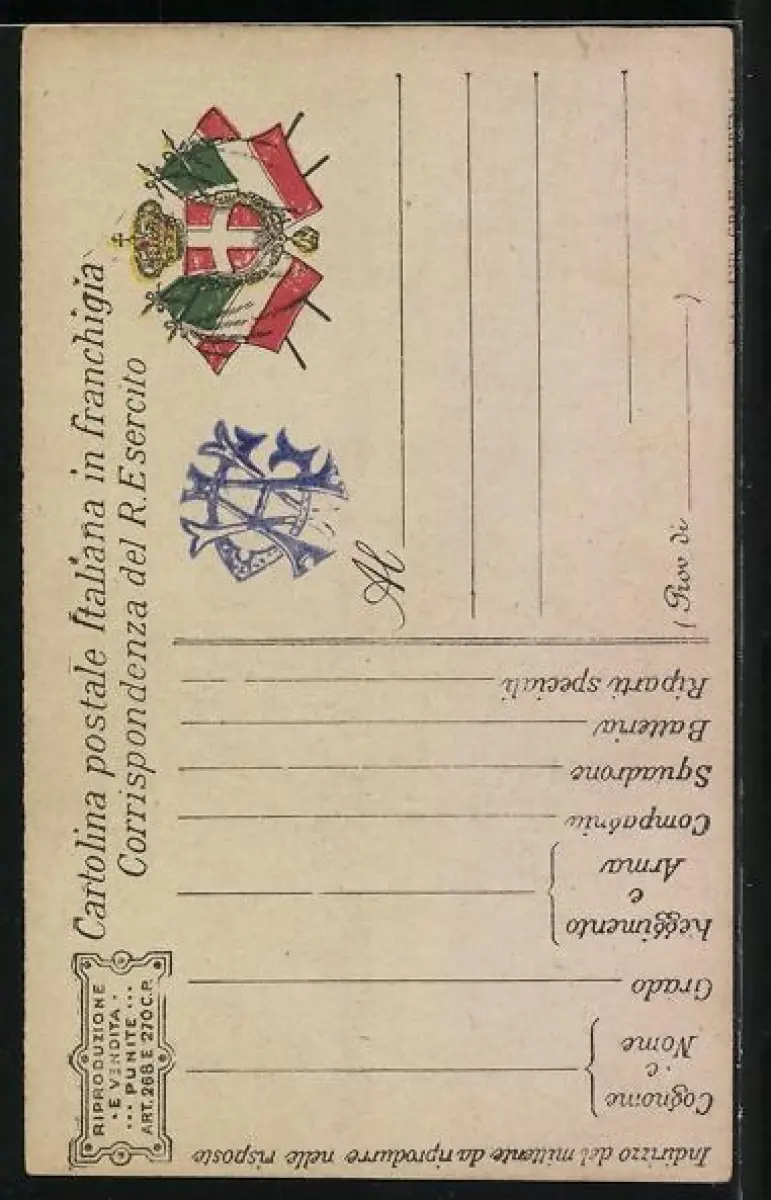 Cartolina postale Italiana in franchigia
Corrispondenza del R. Esercito
RIPRODUZIONE
· E VENDITA ·
··· PUNITE ···
ART. 268 E 270 C.P.
Al
(Prov di )
Indirizzo del mittente da riprodurre nelle risposte
Cognome
e
Nome
Grado
Reggimento
e
Arma
Compagnia
Squadrone
Batteria
Riparti speciali